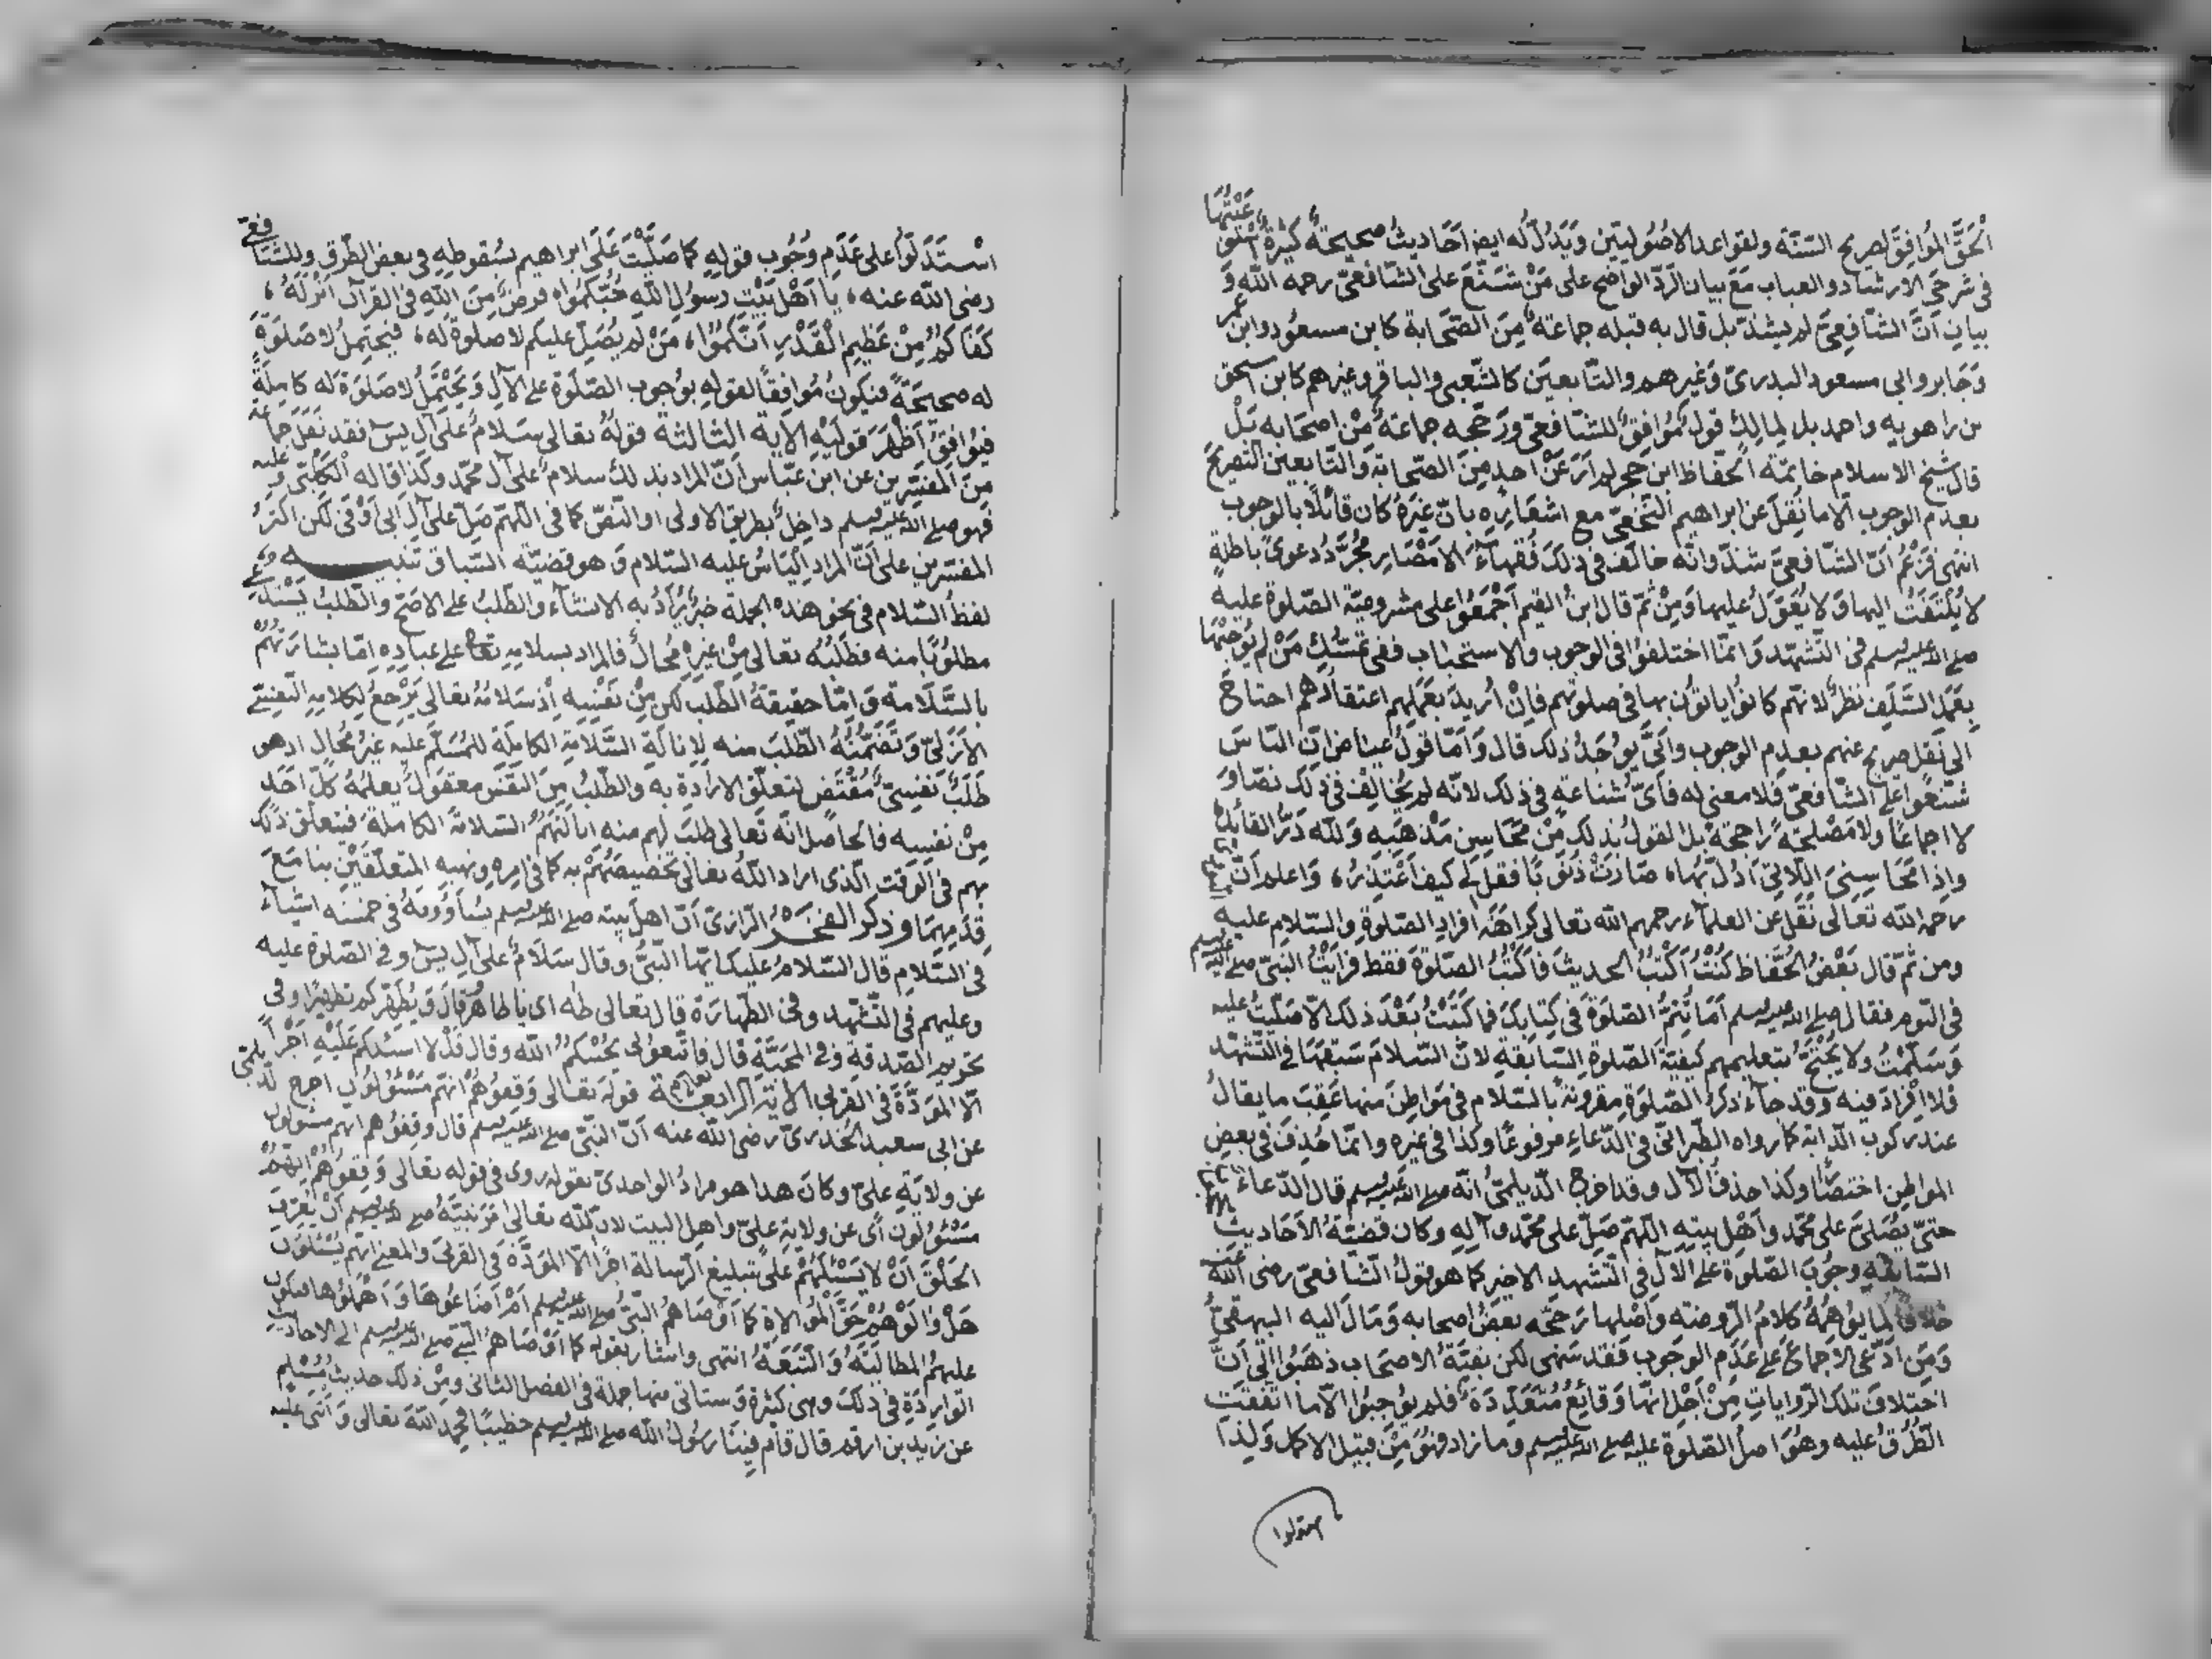 الْحَقُّ المُوافِقُ لصريح السّنّة ولقواعد الاصُوليّين وَيَدُلُّ لَه ايضا اَحَاديثُ صحيحةٌ كثيرةٌ استَوْعَبْتُهَا
فى شرحَيِ الارشاد والعباب مَعَ بيان الرّدّ الواضح على مَنْ شَنَّعَ على الشّافعىّ رحمه اللّه وَ
بيانِ اَنَّ الشّافِعِىَّ لم يشذّ بل قال به قبله جماعةٌ مِنَ الصّحَابة كابن مسعُود وابن عمر
وَجَابر وابى مسعود البدرىّ وَغيرهم والتّابعينَ كالشّعبى والباقر وغيرهم كابن اسحق
بن راهويه واحمد بل لِمالِكٍ قولٌ مُوافِقٌ للشّافعىّ وَرَجّحَه جماعةٌ مِنْ اصحَابه بَلْ
قال شيخ الاسلام خاتمة الحُفّاظ ابن حجر لم اَرَ عَنْ احدٍ مِنَ الصّحابة وَالتّابعين التّصريحَ
بعدم الوجوب الّا ما نُقِلَ عن ابراهيم النّخعىّ مع اشعَارِه بانّ غيرَهُ كان قائلًا بالوجوب
انتهى فَزَعْمُ انّ الشّافعىَّ شذّ وانّه خالَفَ فى ذلكَ فُقَهاءَ الامْصَارِ مُجَرَّدُ دعوىً باطلةٍ
لا يُلْتَفَتُ اليها وَلا يُعَوَّلُ عليها وَمِنْ ثَمّ قال ابنُ القيم اَجْمَعُوا على مشروعيّة الصّلوة عليه
صلى الله عليه وسلم فى التّشهّد وَانّما اختلفُوا فى الوجوب والاستحباب ففى تمسُّكِ مَنْ لم يُوجِبْهَا
بِعَمَلِ السّلَفِ نظرٌ لانّهم كانُوا ياتُون بها فى صلوتهم فاِنْ اُريدَ بِعَمَلِهم اعتقادُهم احتاجَ
الى نقلٍ صريح عنهم بعدم الوجوب وانَّى يُوجَدُ ذلك قال وَامّا قولُ عياض انّ النّاسَ
شنّعُوا على الشّافعىّ فلا معنى له فاَىُّ شناعةٍ فى ذلك لانّه لم يُخالِفْ فى ذلك نصّا وَ
لا اجماعًا ولا مَصْلحةً راجحةً بل القولُ بذلك مِنْ مَحَاسِنِ مَذْهبِه وَللّه دَرُّ القائلِ
وإِذا مَحَاسِنِىَ اللّاتِى اَدُلُّ بِهَا، صَارَتْ ذُنُوبًا فقل لى كيف اَعْتَذِرُ، وَاعلم اَنّ
رحمه اللّه تعَالى نقل عن العلمآء رحمهم اللّه تعالى كراهَةَ افراد الصّلوةِ والسّلام عليه
ومن ثمّ قال بَعْضُ الحُفّاظ كُنْتُ اَكْتُبُ الحديثَ فاكتُبُ الصّلوةَ فقط فَرَاَيْتُ النّبىّ صلى الله عليه وسلم
فى النّوم فقال صلى الله عليه وسلم اَمَا تُتِمُّ الصّلوَةَ فى كِتابِكَ فما كتَبْتُ بَعْدَ ذلكَ الّا صَلّيتُ عليه
وَسَلّمْتُ ولا يُحْتَجُّ بتعليمهم كيفيّةَ الصّلوةِ السّابقةِ لانّ السّلامَ سَبَقَهَا فى التّشهّد
فلا اِفْرادَ فيه وَقد جآءَ ذكرُ الصّلوَةِ مقرونةً بالسّلام فى مَواطِنَ منها عَقِبَ ما يقالُ
عند ركوب الدّابّة كما رواه الطّبرانىّ فى الدّعاءِ مرفوعًا وكذا فى غيره وانّما حُذِفَ فى بعضِ
المواطِن اختصَارًا وكذا حذفُ الآل وقد اخرج الدّيلمىّ انّه صلى الله عليه وسلم قال الدّعاءُ
حتىّ يُصَلَّىَ على محمّد وَاَهْلِ بيتِه اللّهمّ صَلِّ على محمّد وَآلِهِ وكان قضيّةُ الاَحَاديث
السّابقةِ وجُوبَ الصّلوة على الآلِ فى التّشهد الاخير كما هو قولٌ للشّافعىّ رضى اللّه عنه
خلافًا لما يُوهِمُهُ كلامُ الرّوضة وَاصْلها رَجّحه بعضُ اصحابه وَمَالَ اليه البيهقىُّ
وَمَنِ ادّعَى الاجماعَ عَلى عَدَم الوجُوب فقد سَهَى لكن بقيّةُ الاصحَاب ذهبُوا الى اَنَّ
اختلافَ تلكَ الرّواياتِ مِنْ اَجْلِ انّهَا وَقائِعُ مُتعَدِّدَةٌ فلم يُوجِبُوا الّا ما اتّفقَتِ
الطُّرُقُ عليه وهُوَ اصلُ الصّلوة عليه صلى الله عليه وسلم وما زاد فهُوَ مِنْ قبيل الاكمل وَلِذَا
استدلوا
اسْتَدَلُّوا على عَدَمِ وُجُوبِ قولِهِ كما صَلَّيْتَ عَلَى ابراهيم بسُقوطِهِ فى بعض الطّرق وللشّافعىّ
رضى اللّه عنه، يا اَهْلَ بَيْتِ رسوُلِ اللّهِ حُبُّكُموُا، فرضٌ مِنَ اللّهِ فى القرآنِ اَنْزَلَهُ،
كَفَاكُمُ مِنْ عَظِيمِ القَدْرِ اَنَّكُمُوا، مَنْ لم يُصَلِّ عليكم لا صلوةَ له، فيحتمِلُ لا صَلوَةَ
له صحيحَةً فيكونُ مُوافِقًا لقولهِ بوُجوب الصّلَوة على الآلِ وَيَحْتَمِلُ لا صَلوَةَ له كامِلَةً
فيُوافِقُ اَظْهَرَ قولَيْهِ الآية الثّالثة قولهُ تعَالى سَلامٌ علَى آلِ يس فقد نقَلَ جماعة
مِنَ المفسّرين عن ابن عبّاس اَنّ المراد بذلك سلامٌ على آل محمّد وكذا قاله الكلبىّ وعليه
فهو صلى الله عليه وسلم داخِلٌ بطريق الاولى او النّصّ كما فى اللّهمّ صَلّ على آلِ ابى اَوْفَى لكن اكثرُ
المفسّرين على انّ المراد اِلياسُ عليه السّلام وَهو قضيّة السّياق تنبيه
لفظُ السّلام فى نحو هذه الجملة خبرٌ يُرادُ به الانشآء والطّلبُ على الاصَحّ والطّلبُ يَسْتَدْعِى
مطلوُبًا منه وَطَلَبُه تعالى مِنْ غيره مُحالٌ فالمراد بسلامه تعالى على عباده اِمّا بشارَتهُم
بالسّلَامة وَامّا حقيقةُ الطّلب لكن مِنْ نفْسِه اِذ سَلامُهُ تعَالى يَرْجعُ لِكلامِهِ النّفسِىِّ
الاَزَلىِّ وَتَضَمُّنُهُ الطّلبَ منه لِاِنالَةِ السَّلامَةِ الكاملَةِ للمُسَلَّمِ عليه غيرُ مُحالٍ اذ هو
طَلَبٌ نَفسِىٌّ مُقْتَضٍ لتعلّقِ الارادَةِ به وَالطّلبُ مِنَ النّفْسِ معقولٌ يعلَمُهُ كلُّ احَدٍ
مِنْ نفسِه فالحاصِلُ انّه تَعالى طلبَ لهم منه انالتَهُمُ السّلامَةَ الكاملةَ فيتعلّق ذلك
بهم فى الوَقتِ الّذى اراد اللّهُ تعالى تخصيصَهُمْ به كما فى امرِهِ ونهيِه المتعلّقَيْنِ بنا مَعَ
قِدَمِهِمَا وذكر الفخرُ الرّازىّ اَنّ اهلَ بيتِه صلى الله عليه وسلم يُسَاوُونَهُ فى خمسَة اشيآءَ
فى السّلام قال السّلامُ عليك ايّها النّبىُّ وقال سَلَامٌ على آلِ يس وفى الصّلوة عليه
وعليهم فى التّشهّد وفى الطّهارَة قال تعالى طه اى يا طاهرُ وقالَ وَيُطَهِّرَكم تطهيرًا وفى
تحريم الصّدقةِ وفى المحَبَّةِ قال فاتّبعوُنى يُحْبِبْكُمُ اللّه وقال قُلْ لا اسئلكم عَلَيْهِ اَجْرًا
الّا المَوَدَّةَ فى القربى الآية الرّابعة قوله تعالى وَقِفوُهُمْ انّهم مَسْئُولوُنَ اخرج الدّيلمىّ
عن ابى سعيد الخُدرىّ رضى اللّه عنه اَنّ النّبىّ صلى الله عليه وسلم قال وقِفوُهم انّهم مسئولون
عن ولايَةِ علىّ وكانَ هذا هو مرادُ الواحدىّ بقوله روى فى قوله تعالى وَقِفوُهُمْ اِنّهُمْ
مَسْئُولوُن اَىْ عن ولاية علىّ واهل البيت لانّ اللّه تعالى امَرَ نبيَّهُ صلى الله عليه وسلم اَنْ يُعَرِّفَ
الخلْقَ اَنْ لا يَسْئَلَهُمْ على تبليغ الرّسالة اجرًا الّا المَوَدّةَ فى القربى والمعنى انّهم يُسْئلُونَ
هَلْ وَالَوْهُمْ حَقَّ الْمُوالاةِ كما اَوْصَاهُم النّبىُّ صلى الله عليه وسلم اَمْ اَضَاعُوهَا وَاَهْمَلُوها فتكون
عليهمُ المطالَبَةُ وَالتَّبِعَةُ انتهى واشار بقوله كما اَوْصَاهُم النّبىّ صلى الله عليه وسلم الى الاحاديث
الوارِدَةِ فى ذلكَ وهى كثيرة وَستاتى منها جملة فى الفصل الثانى ومِنْ ذلك حديثُ مُسْلِمٍ
عن زيد بن ارقم قال قام فِينَا رسُولُ اللّه صلى الله عليه وسلم خطيبًا فحمد اللّهَ تعالى وَاثنى عليه